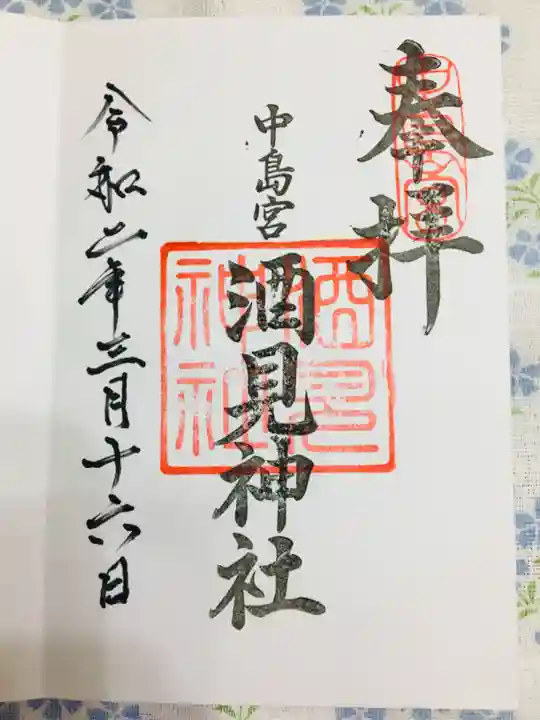 奉拝
中島宮
酒見神社
令和二年三月十六日